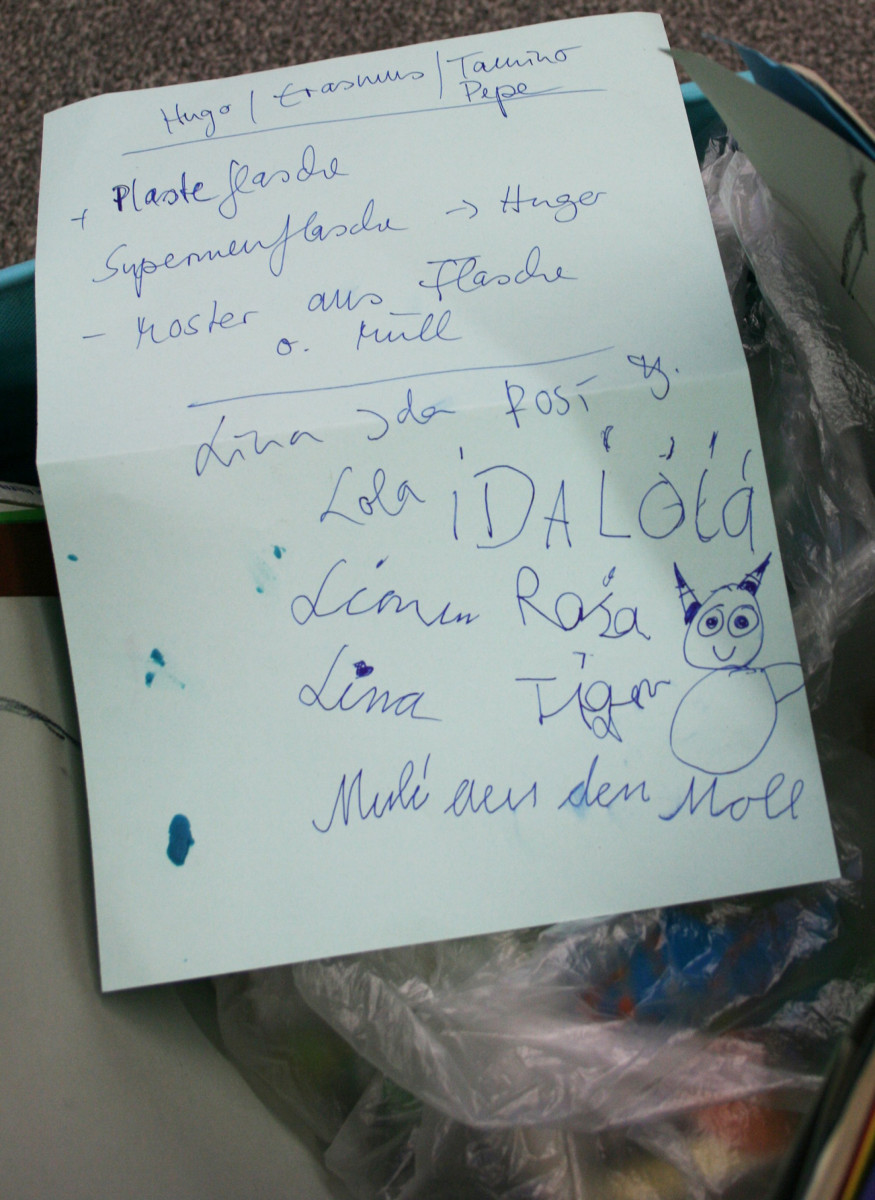 Hugo / Erasmus / Tamino
Pepe
+ Plasteflasche
Supermenflasche → Huger
- Moster aus Flasche
o. Müll
Lina Ida Rosi
Lola IDA LOtta
Rosa
Lina Tiger
aus den Moll